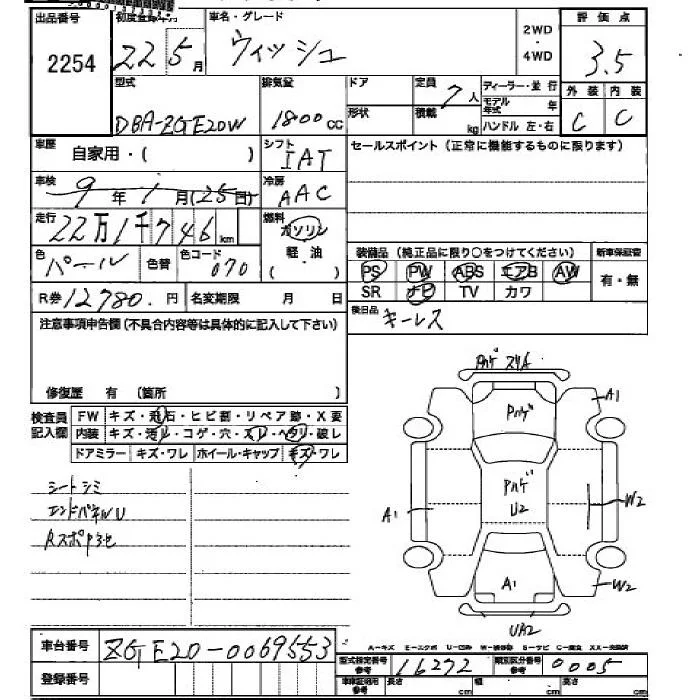 出品番号 初度登録年月 車名・グレード 2WD・4WD 評価点
2254 22 5月 ウィッシュ 3.5
型式 排気量 ドア 定員 7人 ディーラー・並行 外装 内装
DBA-ZGE20W 1800cc 形状 積載 kg モデル年式 年 ハンドル 左・右 C C
車歴 自家用・( ) シフト IAT セールスポイント(正常に機能するものに限ります)
車検 9年1月(25日) 冷房 AAC
走行 22万1千746km 燃料 ガソリン 軽油 ( )
色 パール 色替 色コード 070 装備品(純正品に限り○をつけてください) 新車保証書
PS PW ABS エアB AW 有・無
SR ナビ TV カワ
R券 12780.円 名変期限 月 日 後日品 キーレス
注意事項申告欄(不具合内容等は具体的に記入して下さい)
修復歴 有(箇所 )
検査員記入欄 FW キズ・飛石・ヒビ割・リペア跡・X要
内装 キズ・汚レ・コゲ・穴・スレ・ヘタリ・破レ
ドアミラー キズ・ワレ ホイール・キャップ キズ・ワレ
シートシミ
エンドパネルU
Pハゲ スリA
A1
Pハゲ
Pハゲ
U2
A1
W2
A1
W2
UA2
A-キズ E-エクボ U-凹み W-補修跡 S-サビ C-腐食 XX-交換済
車台番号 ZGE20-0069553
型式指定番号 参考 16272 類別区分番号 参考 0005
登録番号 車庫証明用 参考 長さ cm 幅 cm 高さ cm